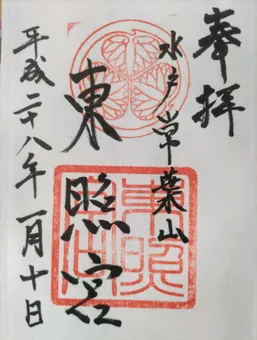 奉拝
水戸常葉山
東照宮
平成二十八年一月十日
東照